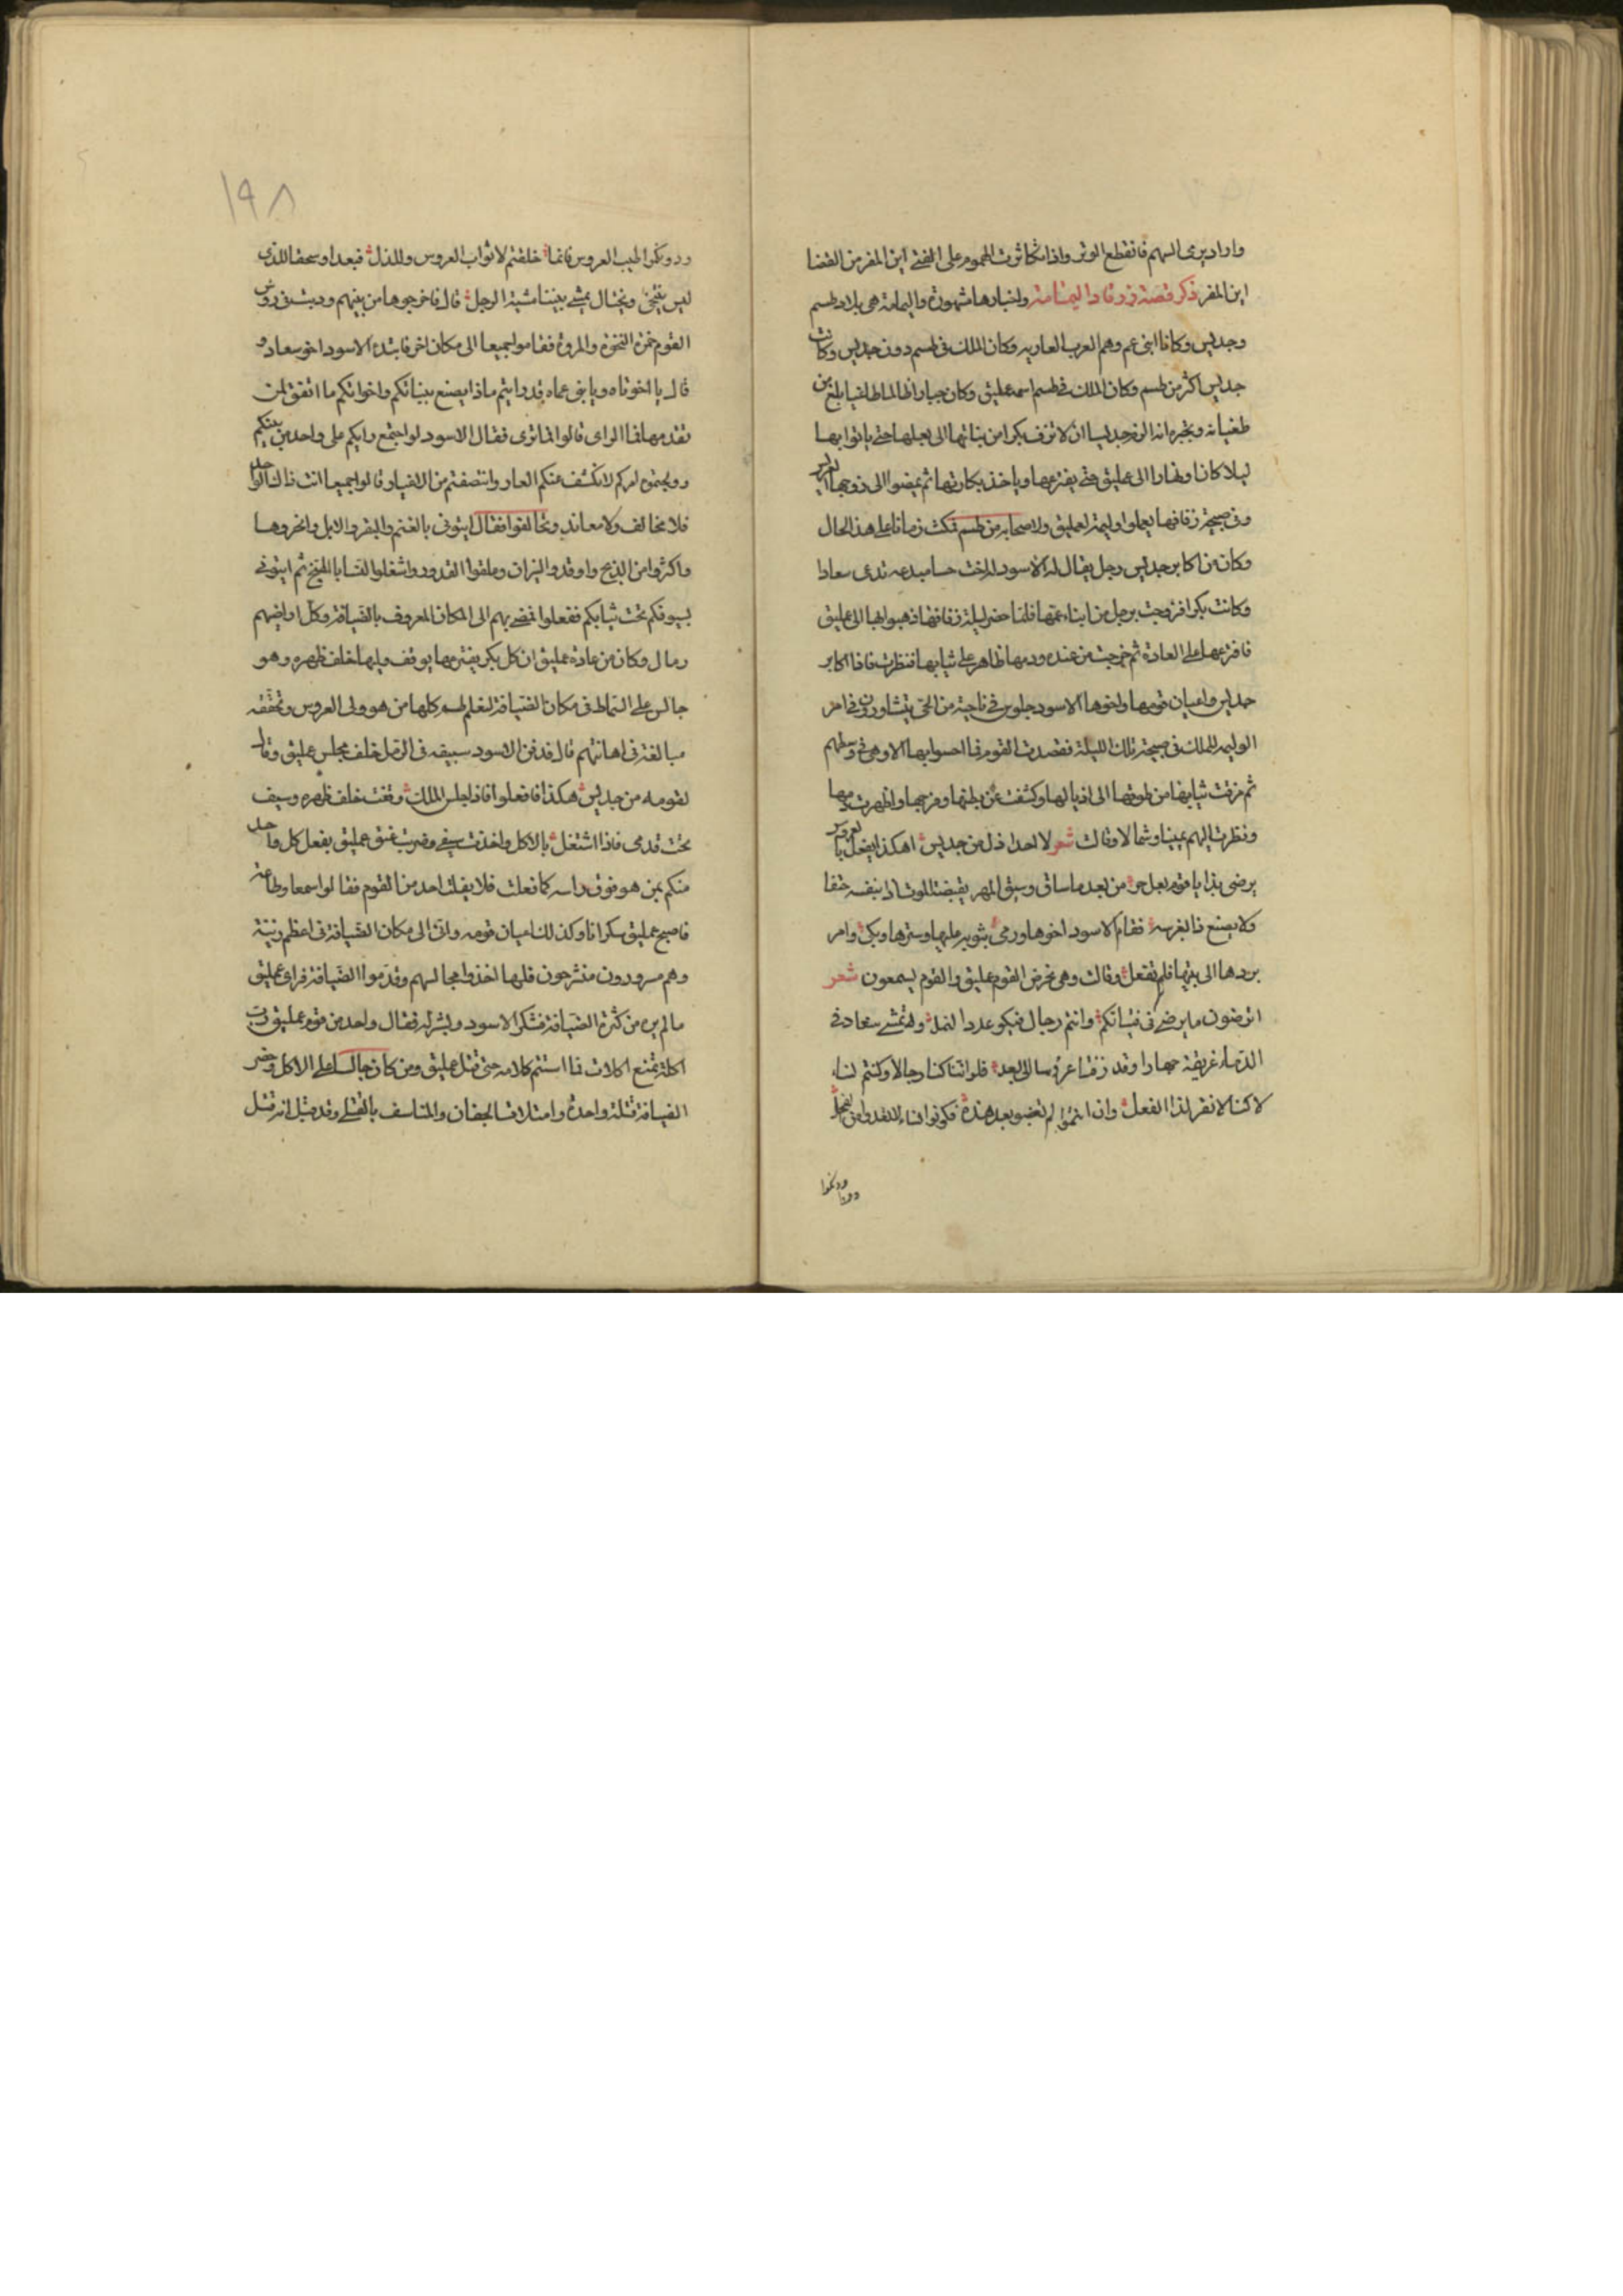 واراد يرمى السهم فانقطع الوتر واذا تكاثرت الهموم على الفتى اين المفر من القضا
اين المفر ذكر قصة زرقاء اليمامة واخبارها مشهورة واليمامة هى بلاد طسم
وجديس وكانا ابنى عم وهم العرب العاربه وكان الملك فى طسم دون جديس وكانت
جديس اكثر من طسم وكان الملك فى طسم اسمه عمليق وكان جبارا ظالما طاغيا بلغ من
طغيانه وتجبره انه الزم جديسا ان لا تزف بكرا من بناتها الى بعلها حتى ياتوا بها
ليلا كان او نهارا الى عمليق حتى يفترعها وياخذ بكارتها ثم يمضوا الى زوجها
وفى صبيحة زفافها يعملوا وليمة لعمليق ولاصحابه من طسم فمكث زمانا على هذا الحال
وكان من اكابر جديس رجل يقال له الاسود له اخت تدعى سعادا
وكانت بكرا فزوجت برجل من ابناء عمها فلما حضر ليلة زفافها ذهبوا بها الى عمليق
فافترعها على العادة ثم خرجت من عنده ودمها ظاهر على ثيابها فنظرت فاذا اكابر
جديس واعيان قومها واخوها الاسود جلوس فى ناحية من الحى يتشاورون فى امر
الوليمه للملك فى صبيحة تلك الليلة فقصدت القوم فما احسوا بها الا وهى فى وسطهم
ثم مزقت ثيابها من طوقها الى اذيالها وكشفت عن بطنها وفرجها واظهرت دمها
ونظرت اليهم يمينا وشمالا وقالت شعر لا احد اذل من جديس اهكذا يفعل بالعروس
يرضى بذا يا قوم بعل حر من بعد ما ساق وسيق المهر يقبضه الموت كذا بنفسه حتفا
ولا يصنع ذا بعرسه فقام الاسود اخوها ورمى بثوبه عليها وسترها وبكى وامر
بردها الى بيتها فلم تفعل وقالت وهى تحرض القوم على عمليق والقوم يسمعون شعر
اترضون ما يرضى فى فتياتكم وانتم رجال فيكم عدد النمل وله تمشى سعاد فى
الدماء غريقة جهارا وقد زفت عروسا الى بعل فلو اننا كنا رجالا وكنتم نساء
لا كنا لا نقر لذا الفعل وان انتموا لم تغضبوا بعد هذه فكونوا نساء
ودونكم
ودونكم طيب العروس فانما خلقتم لاثواب العروس وللذل فبعدا وسحقا للذى
ليس ينتخى ويختال يمشى بيننا مشية الرجل قال فاخرجوها من بينهم ودبت فى روس
القوم خمرة النخوة والمروة فقاموا جميعا الى مكان اخر فابتدء الاسود اخو سعاد و
قال يا اخوتاه ويا بنى عماه قد رايتم ماذا يصنع ببناتكم واخواتكم ما اتفق لمن
تقدمها فما الراى قالوا فما ترى فقال الاسود لو اجتمع رايكم على واحد من بينكم
وولجتموه امركم لانكشف عنكم العار وانتصفتم من الاغيار قالوا جميعا انت ذاك
فلا مخالف ولا معاند وتحالفوا فقال ايتونى بالغنم والبقر والابل وانحروها
واكثروا من الذبح واوقدوا النيران وعلقوا القدور واشغلوا النسا بالطبخ ثم ايتونى
بسيوفكم تحت ثيابكم ففعلوا فمضى بهم الى المكان المعروف بالضيافة وكل اراضيهم
رمال وكان من عادة عمليق ان كل بكر يفترعها يوقف وليها خلف ظهره وهو
جالس على السماط فى مكان الضيافة لتعلم طسم كلها من هو ولى العروس وتحققه
مبالغة فى اهانتهم قال فدفن الاسود سيفه فى الرمل خلف مجلس عمليق وقال
لقومه من جديس هكذا فافعلوا فاذا جلس الملك وقفت خلف ظهره وسيفى
تحت قدمى فاذا اشتغل بالاكل واخذت سيفى وضربت عنق عمليق يفعل كل واحد
منكم بمن هو فوق راسه كما فعلت فلا يفلت احد من القوم فقالوا سمعا وطاعة
فاصبح عمليق سكرانا وكذلك اعيان قومه واتى الى مكان الضيافة فى اعظم زينة
وهم مسرورون منشرحون فلما اخذوا مجالسهم وقدموا الضيافة فراى عمليق
مالم يره من كثرة الضيافة فشكر الاسود وبشر له فقال واحد من قوم عمليق رب
اكلة تمنع اكلات فما استتم كلامه حتى قتل عمليق ومن كان جالسا على الاكل وحضر
الضيافة قتلة واحدة وامتلات الجفان والمناسف بالقتلى وقد قيل انه قتل
١٩٨